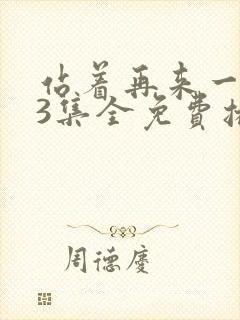 佔着再来一
3集全免費播
周德慶